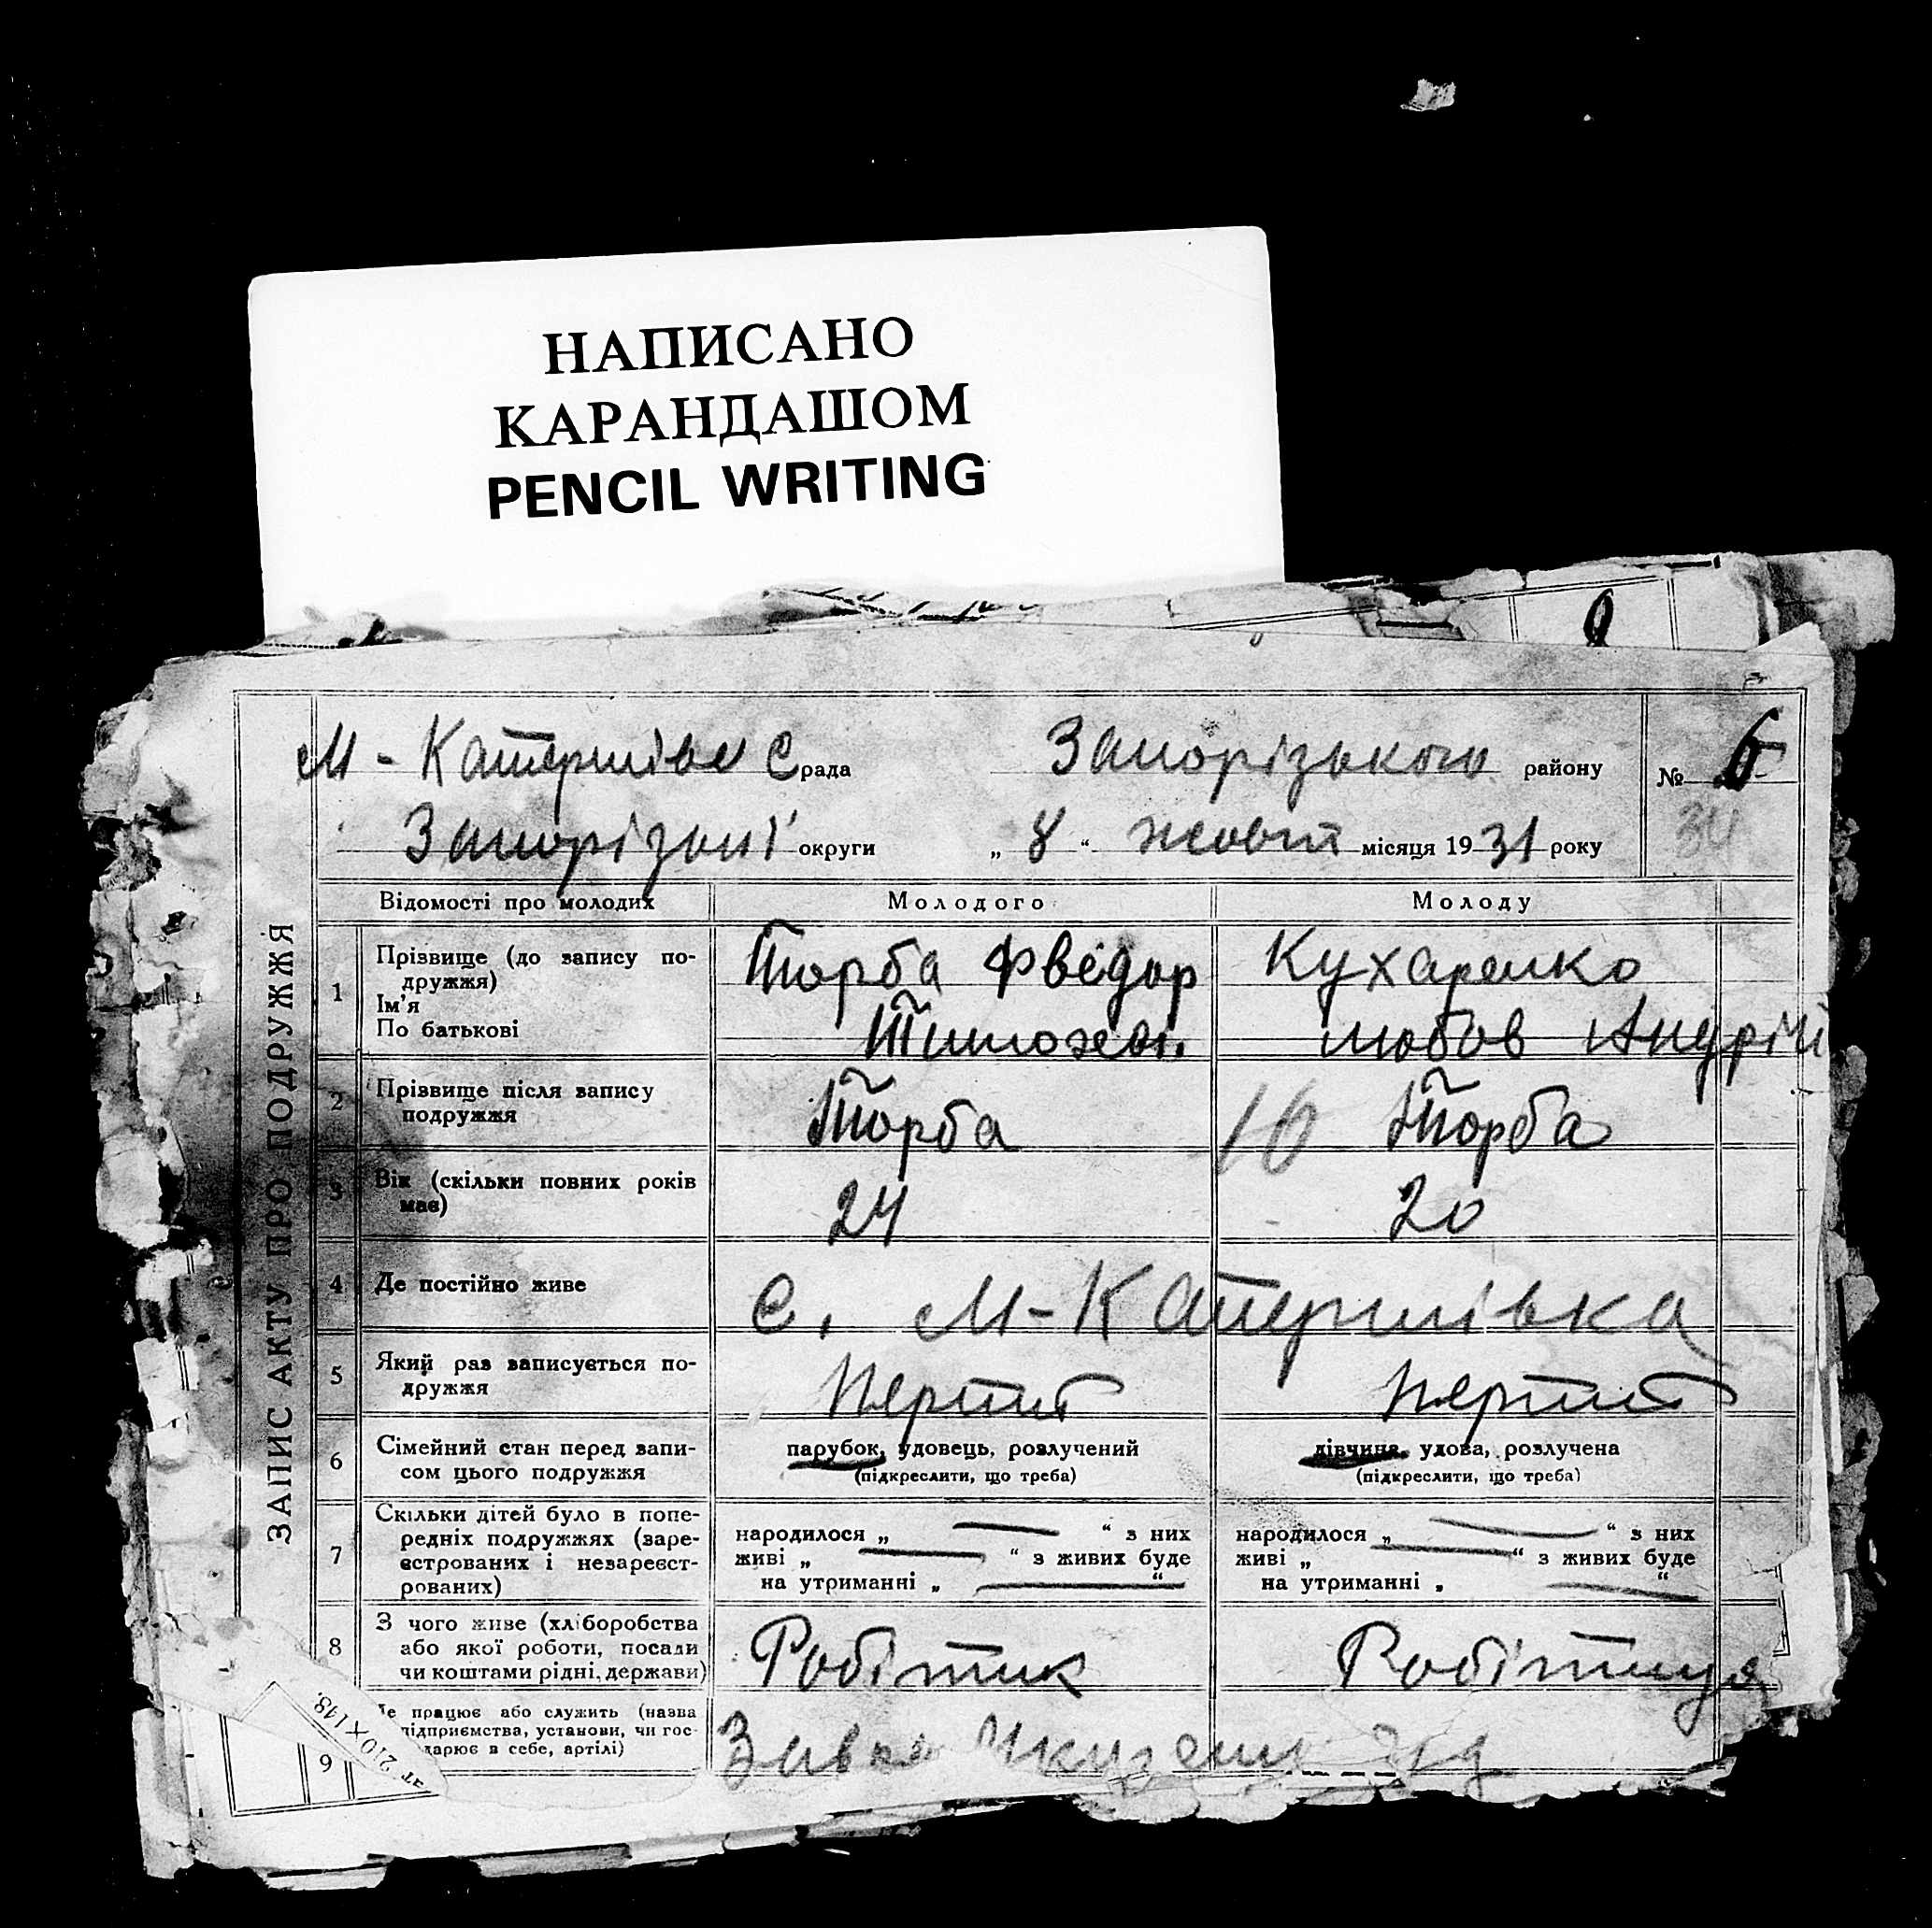 НАПИСАНО
КАРАНДАШОМ
PENCIL WRITING
М - Катеринівс С рада Запорізького району № 6
Запорізької округи „ 8 “ жовтн місяця 19 31 року 34
ЗАПИС АКТУ ПРО ПОДРУЖЖЯ
Відомості про молодих Молодого Молоду
1 Прізвище (до запису по- Торба Фведор Кухаренко
дружжя)
Ім'я
По батькові Тимохві. Любов Андрій
2 Прізвище після запису Торба 16 Торба
подружжя
3 Вік (скільки повних років 24 20
має)
4 Де постійно живе с. М-Катеринівка
5 Який раз записується по- Перший Перший
дружжя
6 Сімейний стан перед запи- парубок, удовець, розлучений дівчина, удова, розлучена
сом цього подружжя (підкреслити, що треба) (підкреслити, що треба)
7 Скільки дітей було в попе-
редніх подружжях (заре- народилося „ — “ з них народилося „ — “ з них
єстрованих і незареєст- живі „ — “ з живих буде живі „ — “ з живих буде
рованих) на утриманні „ — “ на утриманні „ — “
8 З чого живе (хліборобства Робітник Робітниця
або якої роботи, посади
чи коштами рідні, держави)
працює або служить (назва
підприємства, установи, чи гос-
в себе, артілі)
210×148.
9